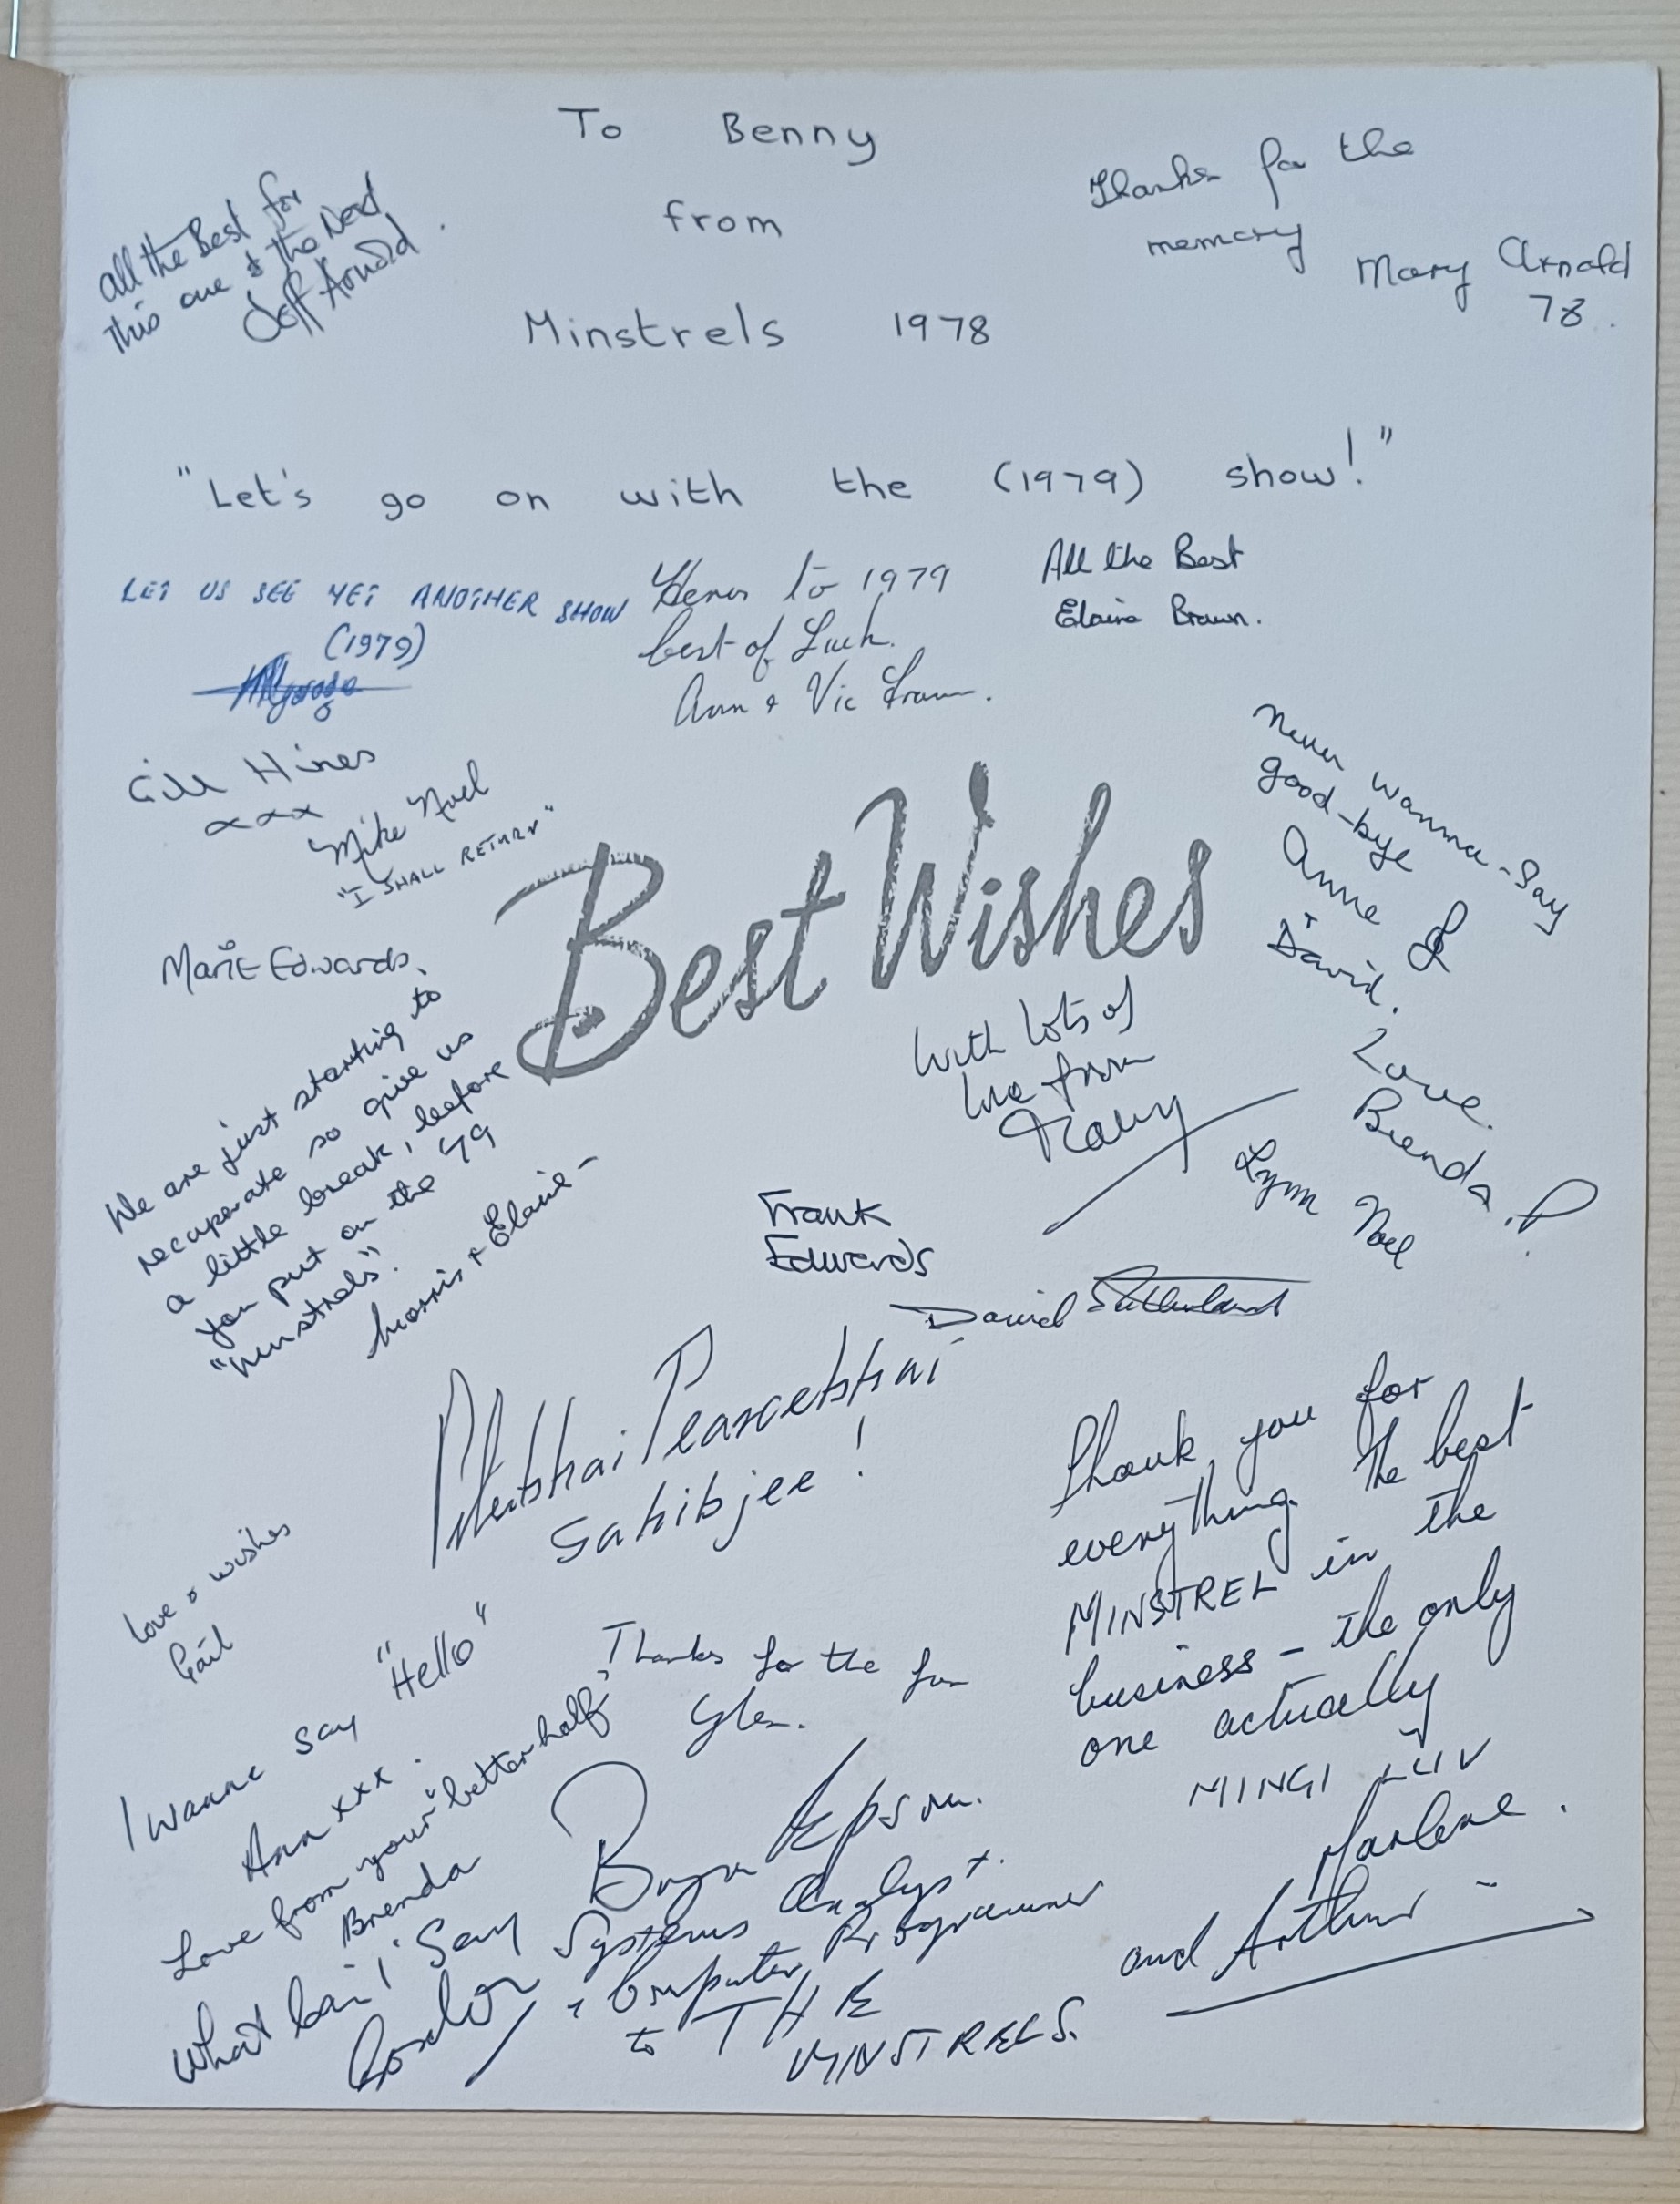 To Benny
from
Minstrels 1978
All the Best for
this one & the Next
Jeff Arnold
Thanks for the
memory
Mary Arnold
78.
"Let's go on with the (1979) show!"
LET US SEE YET ANOTHER SHOW
(1979)
Heres to 1979
best of Luck.
Ann & Vic
All the Best
Elaine Brown.
Gill Hines
xxx
Mike Noel
"I SHALL RETURN"
Marie Edwards.
Best Wishes
Never wanna-say
good-bye
Anne &
David.
With lots of
love from
Love.
Brenda.P
Lynn Noel
We are just starting to
recuperate so give us
a little break, before
you put on the '79
"Minstrels".
Morris & Elaine -
Frank
Edwards
David Sutherland
Peterbhai Pearcebhai
Sahibjee!
Love & wishes
Gail
I wanna say "Hello"
Ann xxx.
Thanks for the fun
Glen.
Thank you for
everything. The best
MINSTREL in the
business - the only
one actually
MINGI LUV
Marlene.
and Arthur
Love from your "better half"
Brenda
What can I say
Gordon
Epsom.
Systems Analyst.
& Computer Programmer
to THE
MINSTRELS.